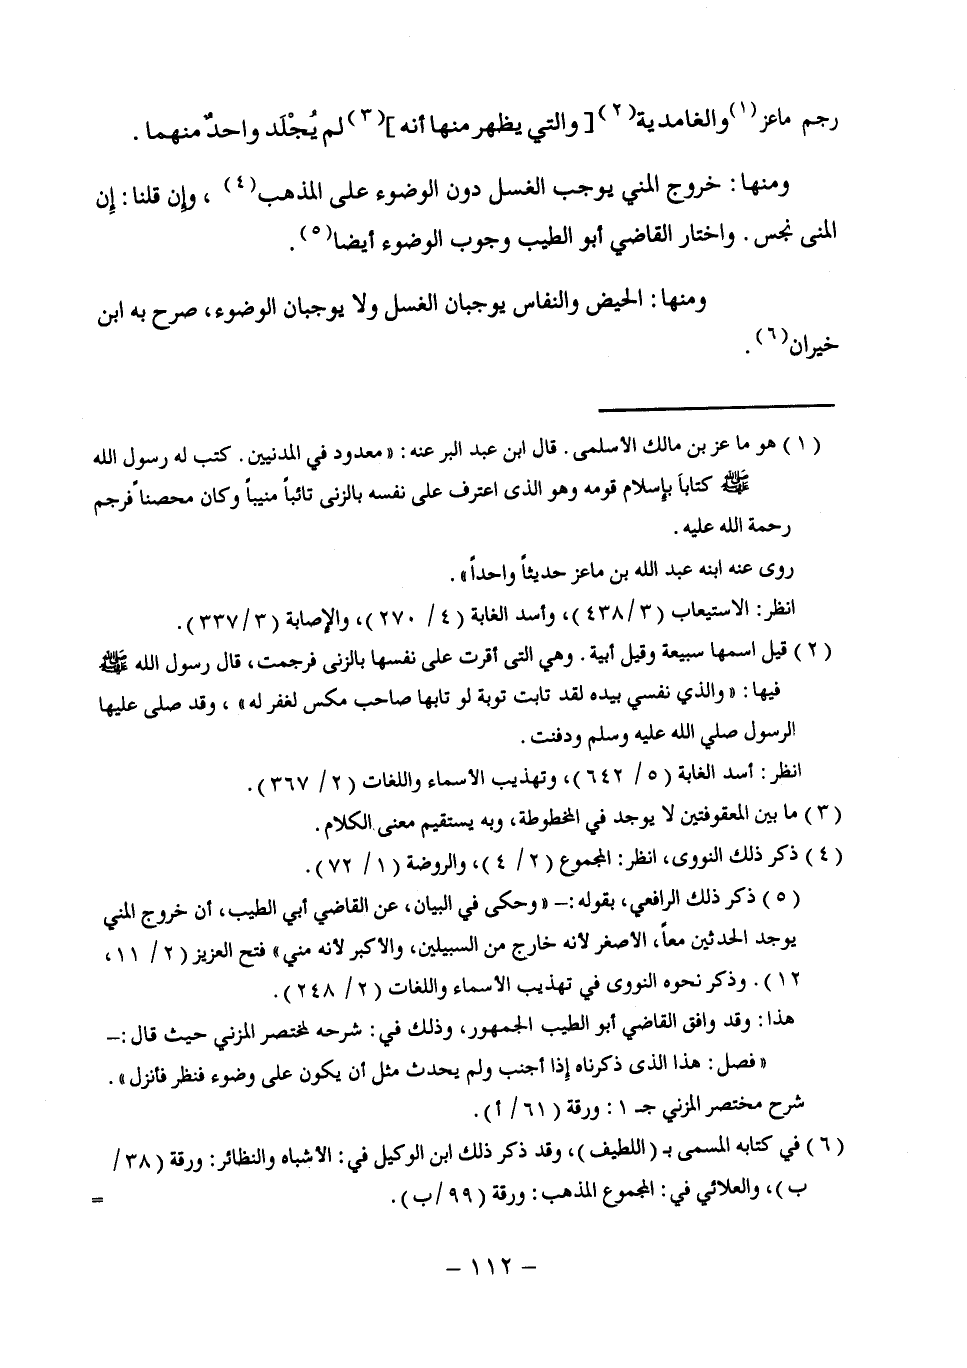 رجم ماعز(١) والغامدية(٢) [ والتي يظهر منها أنه ](٣) لم يُجْلَد واحدٌ منهما .
ومنها : خروج المني يوجب الغسل دون الوضوء على المذهب(٤) ، وإن قلنا : إن
المنى نجس . واختار القاضي أبو الطيب وجوب الوضوء أيضا(٥) .
ومنها : الحيض والنفاس يوجبان الغسل ولا يوجبان الوضوء، صرح به ابن
خيران(٦) .
( ١ ) هو ما عز بن مالك الأسلمى . قال ابن عبد البر عنه : « معدود في المدنيين . كتب له رسول الله
ﷺ كتاباً بإسلام قومه وهو الذى اعترف على نفسه بالزنى تائباً منيباً وكان محصناً فرجم
رحمة الله عليه .
روى عنه ابنه عبد الله بن ماعز حديثاً واحداً » .
انظر : الاستيعاب ( ٣ /٤٣٨ )، وأسد الغابة ( ٤ / ٢٧٠ )، والإصابة ( ٣ /٣٣٧ ) .
( ٢ ) قيل اسمها سبيعة وقيل أبية . وهي التى أقرت على نفسها بالزنى فرجمت، قال رسول الله ﷺ
فيها : « والذي نفسي بيده لقد تابت توبة لو تابها صاحب مكس لغفر له » ، وقد صلى عليها
الرسول صلي الله عليه وسلم ودفنت .
انظر : أسد الغابة ( ٥ / ٦٤٢ )، وتهذيب الأسماء واللغات ( ٢ / ٣٦٧ ) .
( ٣ ) ما بين المعقوفتين لا يوجد في المخطوطة، وبه يستقيم معنى الكلام .
( ٤ ) ذكر ذلك النووى، انظر : المجموع ( ٢ / ٤ )، والروضة ( ١ / ٧٢ ) .
( ٥ ) ذكر ذلك الرافعي، بقوله :– « وحكى في البيان، عن القاضي أبي الطيب، أن خروج المني
يوجد الحدثين معاً، الأصغر لأنه خارج من السبيلين، والأكبر لأنه مني » فتح العزيز ( ٢ / ١١ ،
١٢ ) . وذكر نحوه النووى في تهذيب الأسماء واللغات ( ٢ / ٢٤٨ ) .
هذا : وقد وافق القاضي أبو الطيب الجمهور، وذلك في : شرحه لمختصر المزني حيث قال :–
« فصل : هذا الذى ذكرناه إذا أجنب ولم يحدث مثل أن يكون على وضوء فنظر فأنزل » .
شرح مختصر المزني جـ ١ : ورقة ( ٦١ / أ ) .
( ٦ ) في كتابه المسمى بـ ( اللطيف )، وقد ذكر ذلك ابن الوكيل في : الأشباه والنظائر : ورقة ( ٣٨ /
ب )، والعلائي في : المجموع المذهب : ورقة ( ٩٩ /ب ) . =
– ١١٢ –